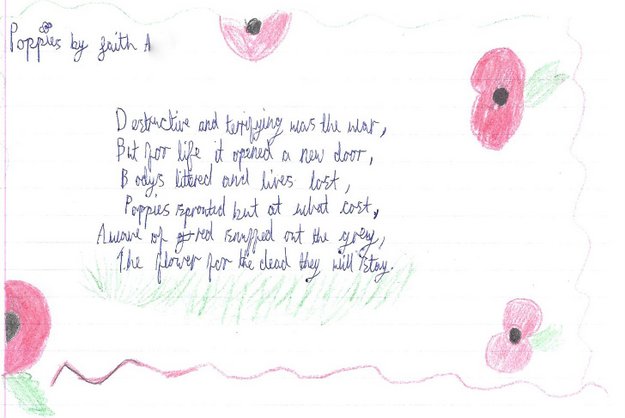 Poppies by faith A
Destructive and terrifying was the war,
But for life it opened a new door,
Bodys littered and lives lost,
Poppies sprouted but at what cost,
A wave of red snuffed out the grey,
The flower for the dead they will stay.